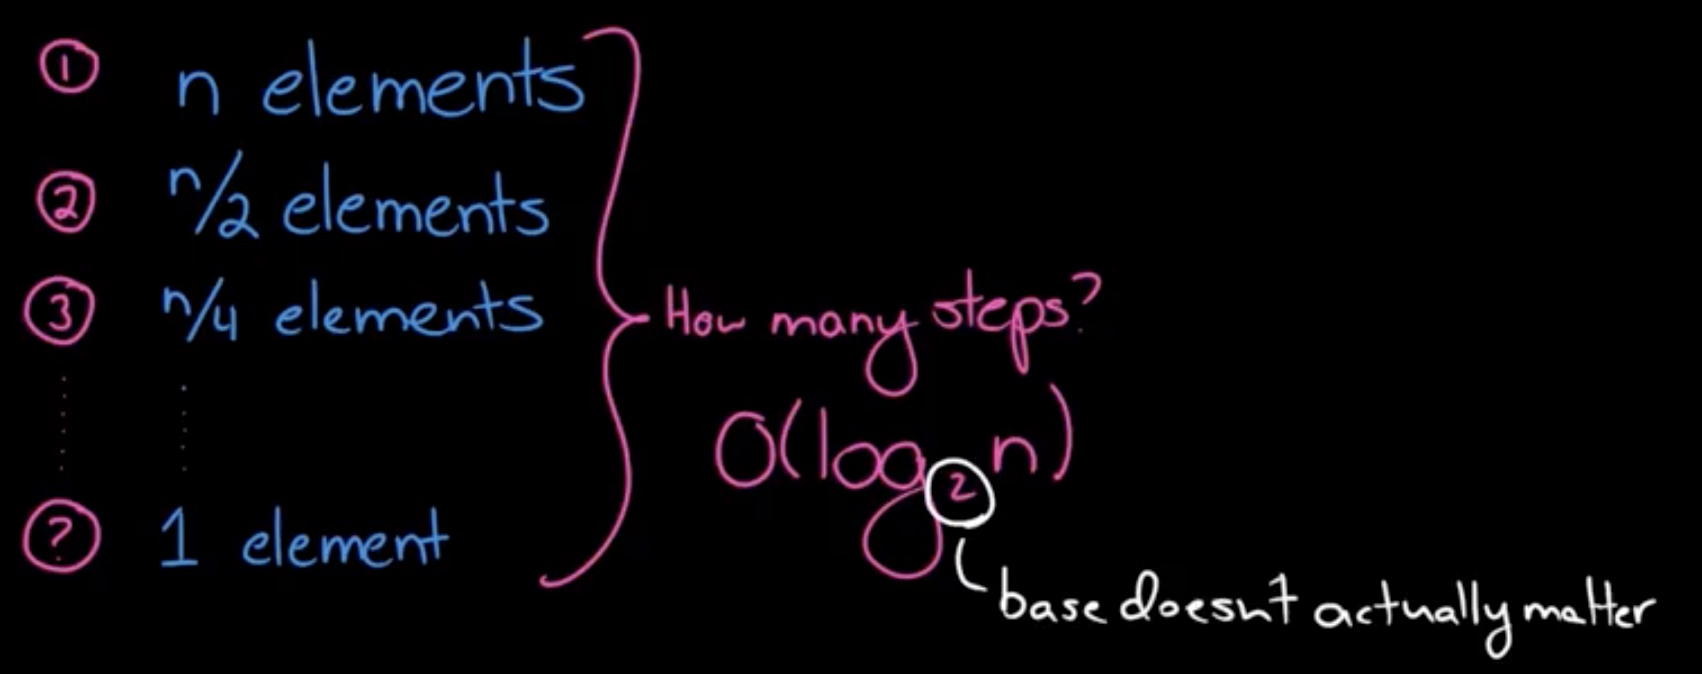 ① n elements
② n/2 elements
③ n/4 elements
? 1 element
How many steps?
O(log₂n)
base doesn't actually matter